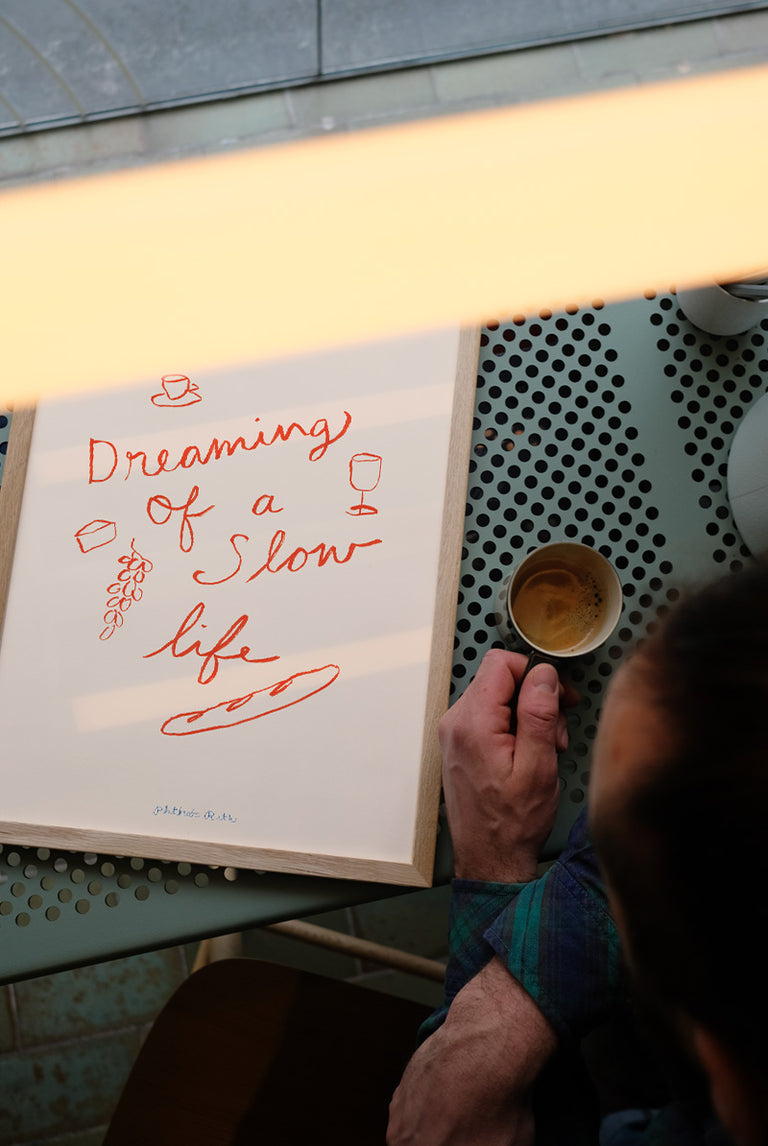 Dreaming
Of a
Slow
life